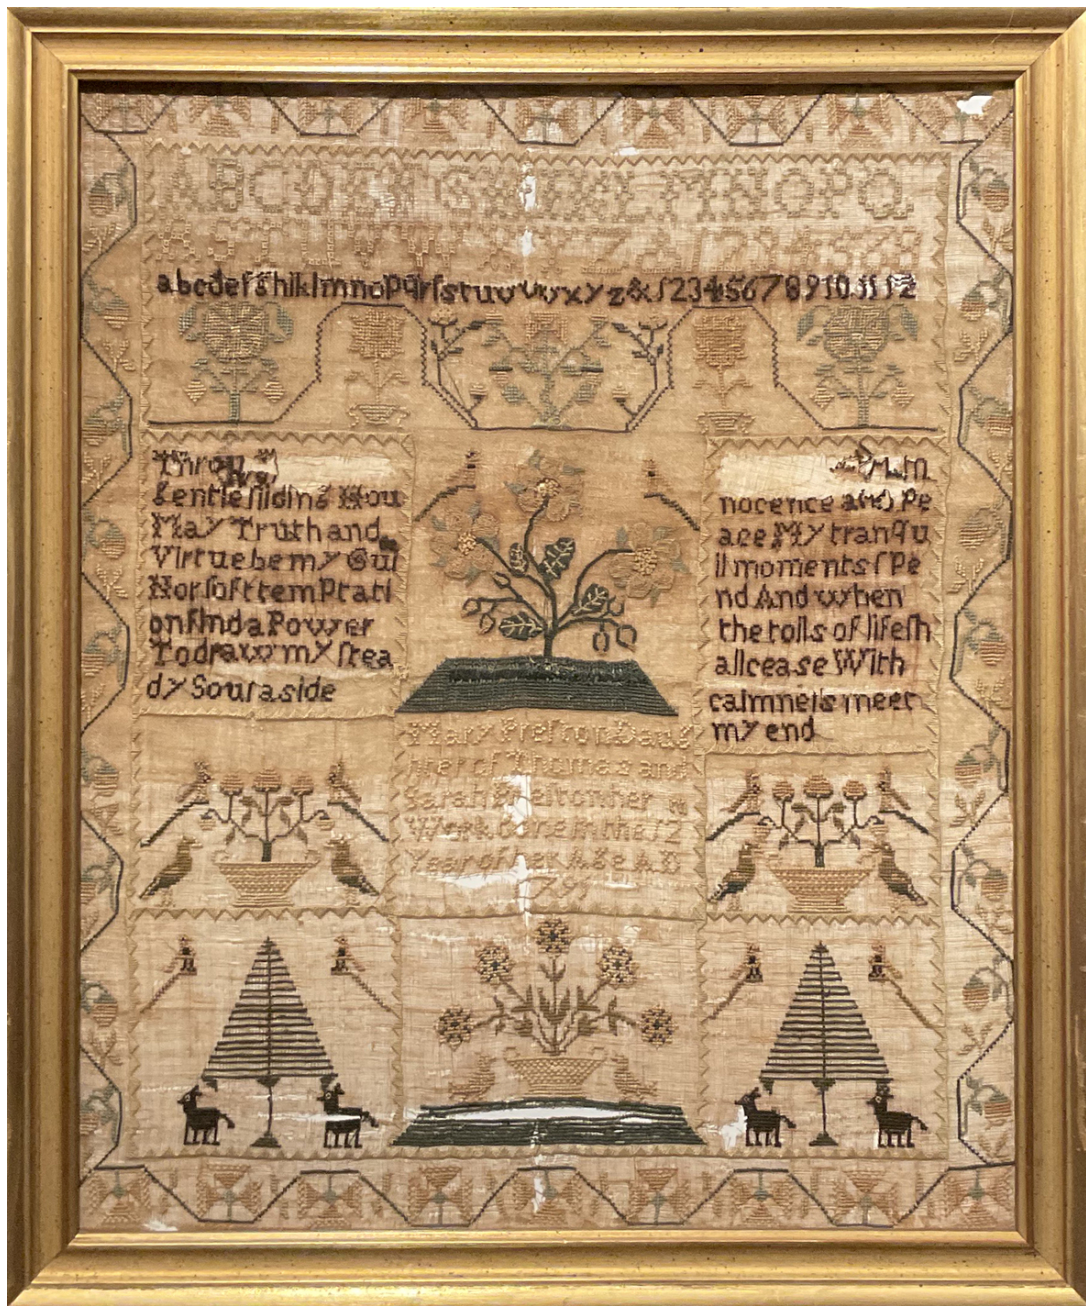 ABCDEFGHIJKLMNOPQ
abcdefghiklmnopqrſstuvwxyz&12345678910.11 12
Thro
gentle ſliding Hou
May Truth and
Virtue be my Gui
Nor ſoft temPtati
on find a Power
To draw my ſtea
dy Soul aside
nocence and Pe
ace My tranqu
il moments ſPe
nd And when
the toils of life ſh
all cease With
calmneſs meet
my end
Mary Preſton Daug
hter of Thomas and
Sarah Preſton her
Work done in the 12
Year of her Age A D